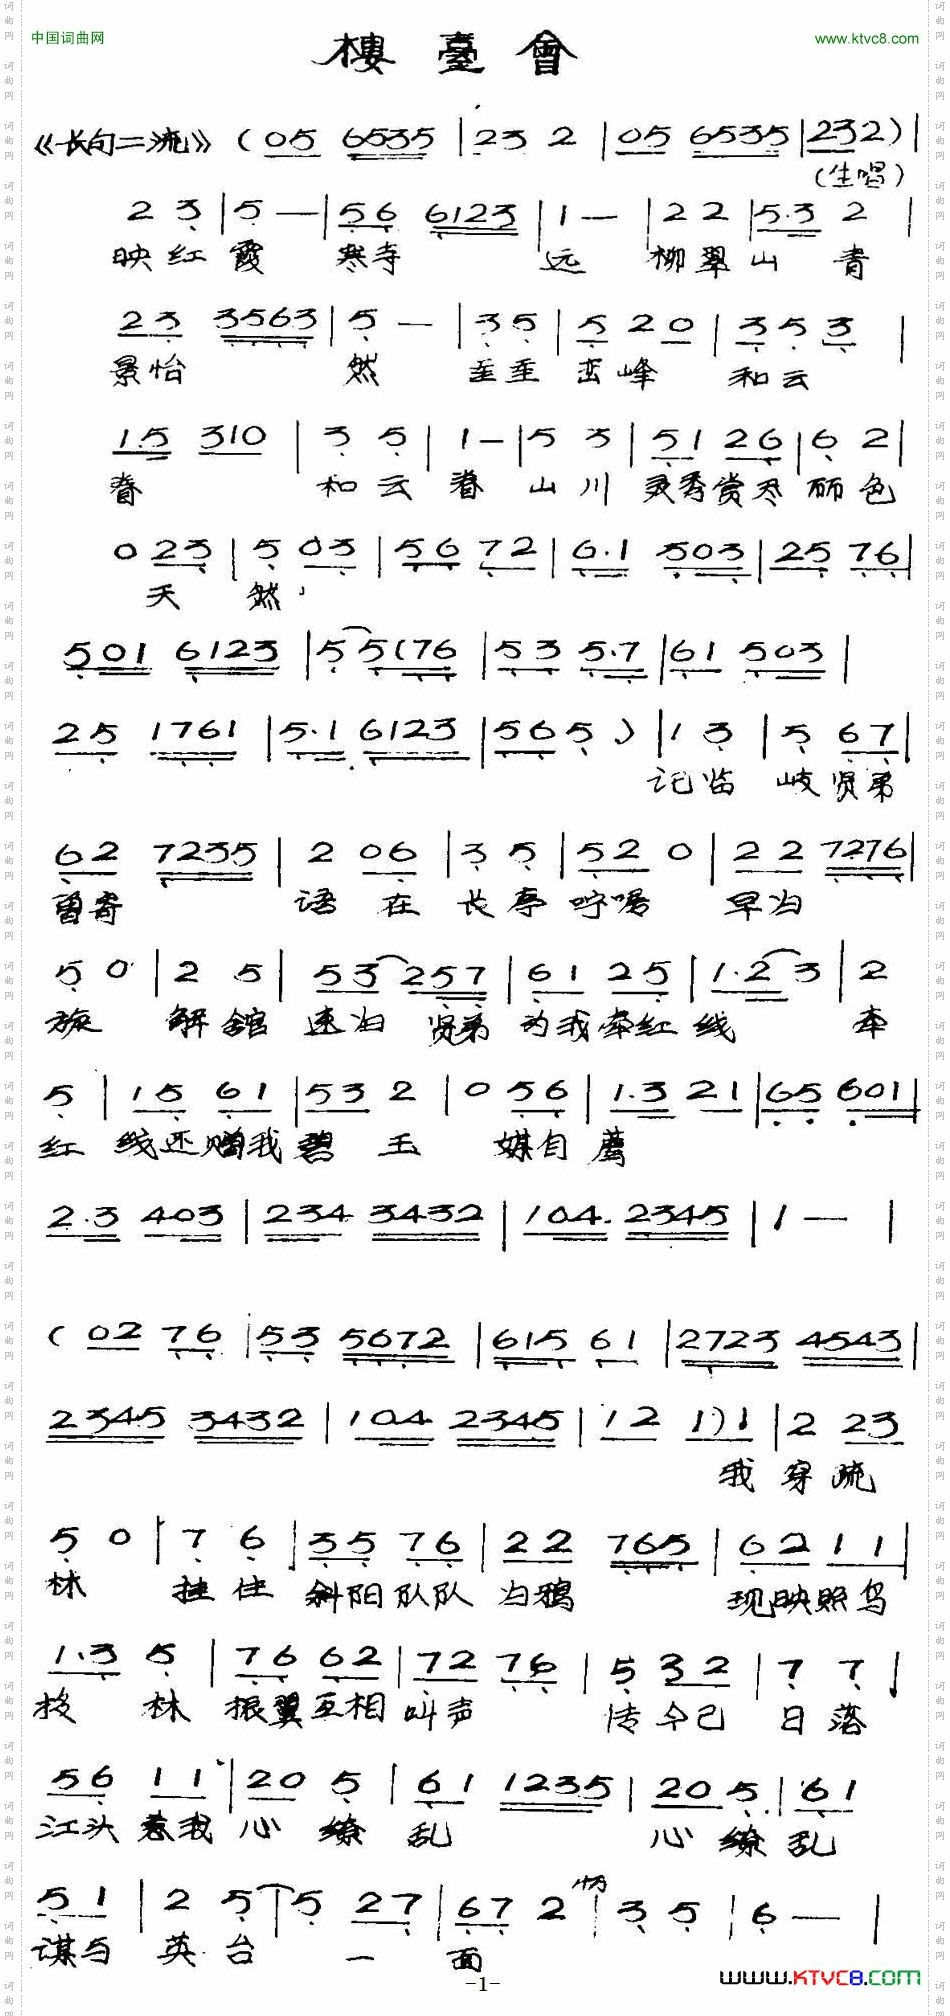 中国词曲网 樓臺會 www.ktvc8.com
《长句二流》 (05 6535 | 23 2 | 05 6535 | 232) |
(生唱)
2 3 | 5 — | 56 6123 | 1 — | 22 | 5·3 2 |
映红霞 寒寺 远 柳翠山 青
23 3563 | 5 — | 35 | 5 20 | 3 5 3 |
景怡 然 垂垂 峦峰 和云
1.5 310 | 3 5 | 1 — | 5 3 | 51 26 | 6 2 |
眷 和云眷山川灵秀赏尽丽色
0 23 | 5 03 | 56 72 | 6.1 503 | 25 76 |
天 然
501 6123 | 5 5(76 | 53 5.7 | 61 503 |
25 1761 | 5.1 6123 | 565 ) | 1 3 | 5 67 |
记临 岐贤弟
62 7235 | 2 06 | 3 5 | 52 0 | 22 7276 |
曾寄 语在长亭咛嘱 早归
5 0 | 2 5 | 53 257 | 61 25 | 1.2 3 | 2
旋 解馆速归贤弟为我牵红线 牵
5 | 15 61 | 53 2 | 0 56 | 1.3 21 | 65 601 |
红 线还赠我碧玉 媒自荐
2.3 403 | 234 3432 | 104. 2345 | 1 — |
( 02 76 | 53 5672 | 615 61 | 2723 4543 |
2345 3432 | 104 2345 | 12 1)1 | 2 23
我穿疏
5 0 | 7 6 | 35 76 | 22 765 | 62 11 |
林 挂住斜阳队队归鸦 现映照鸟
1.3 5 | 76 62 | 72 76 | 5 32 | 7 7 |
投 林 振翼互相叫声 传今已 日落
56 11 | 20 5 | 61 1235 | 20 5. | 61
江头惹我心缭乱 心缭乱
51 | 2 5 | 5 27 | 67 2 | 3 5 | 6 — |
谋与 英台 一 面
-1- www.KTVC8.COM
词曲网